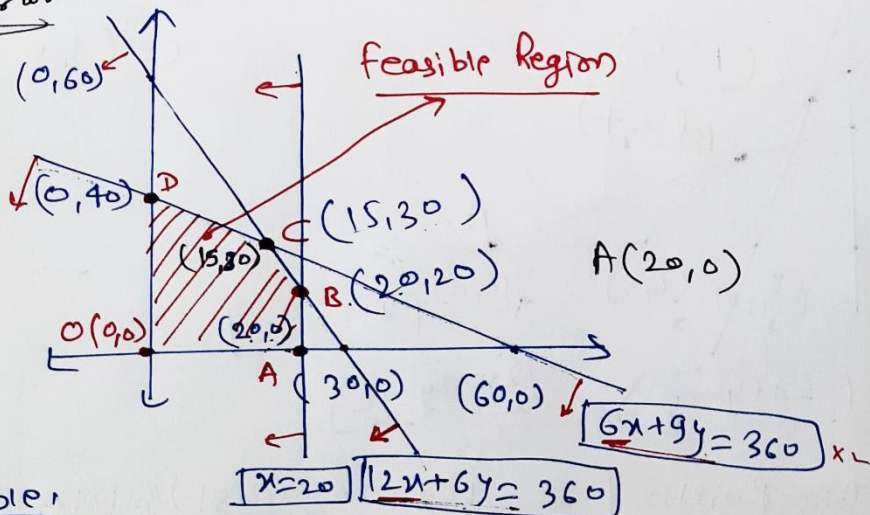 Feasible Region
(0,60)
D
(0,40)
C (15,30)
(15,30)
B (20,20)
A(20,0)
O(0,0)
(20,0)
A
(30,0)
(60,0)
6x+9y=360
x=20
12x+6y=360
ble: